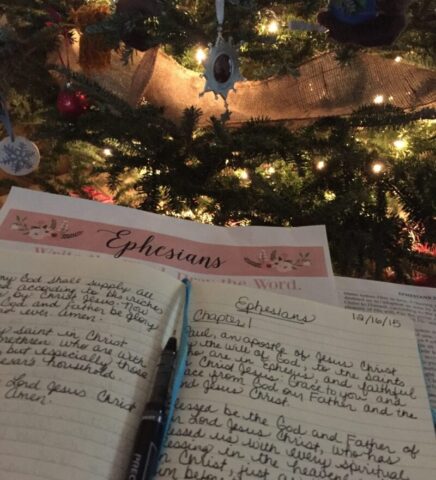 Ephesians
the Word.
my God shall supply all
according to His riches
by Christ Jesus. Now
God and Father be glory
and ever. Amen.
saint in Christ
brethren who are with
but especially those
household.
Lord Jesus Christ
Amen.
Ephesians
12/16/15
Chapter 1
Paul, an apostle of Jesus Christ
the will of God, to the saints
who are in Ephesus, and faithful
Christ Jesus: Grace to you and
from God our Father and the
Jesus Christ.
Blessed be the God and Father of
our Lord Jesus Christ, who has
blessed us with every spiritual
blessing in the heavenly
in Christ, just as